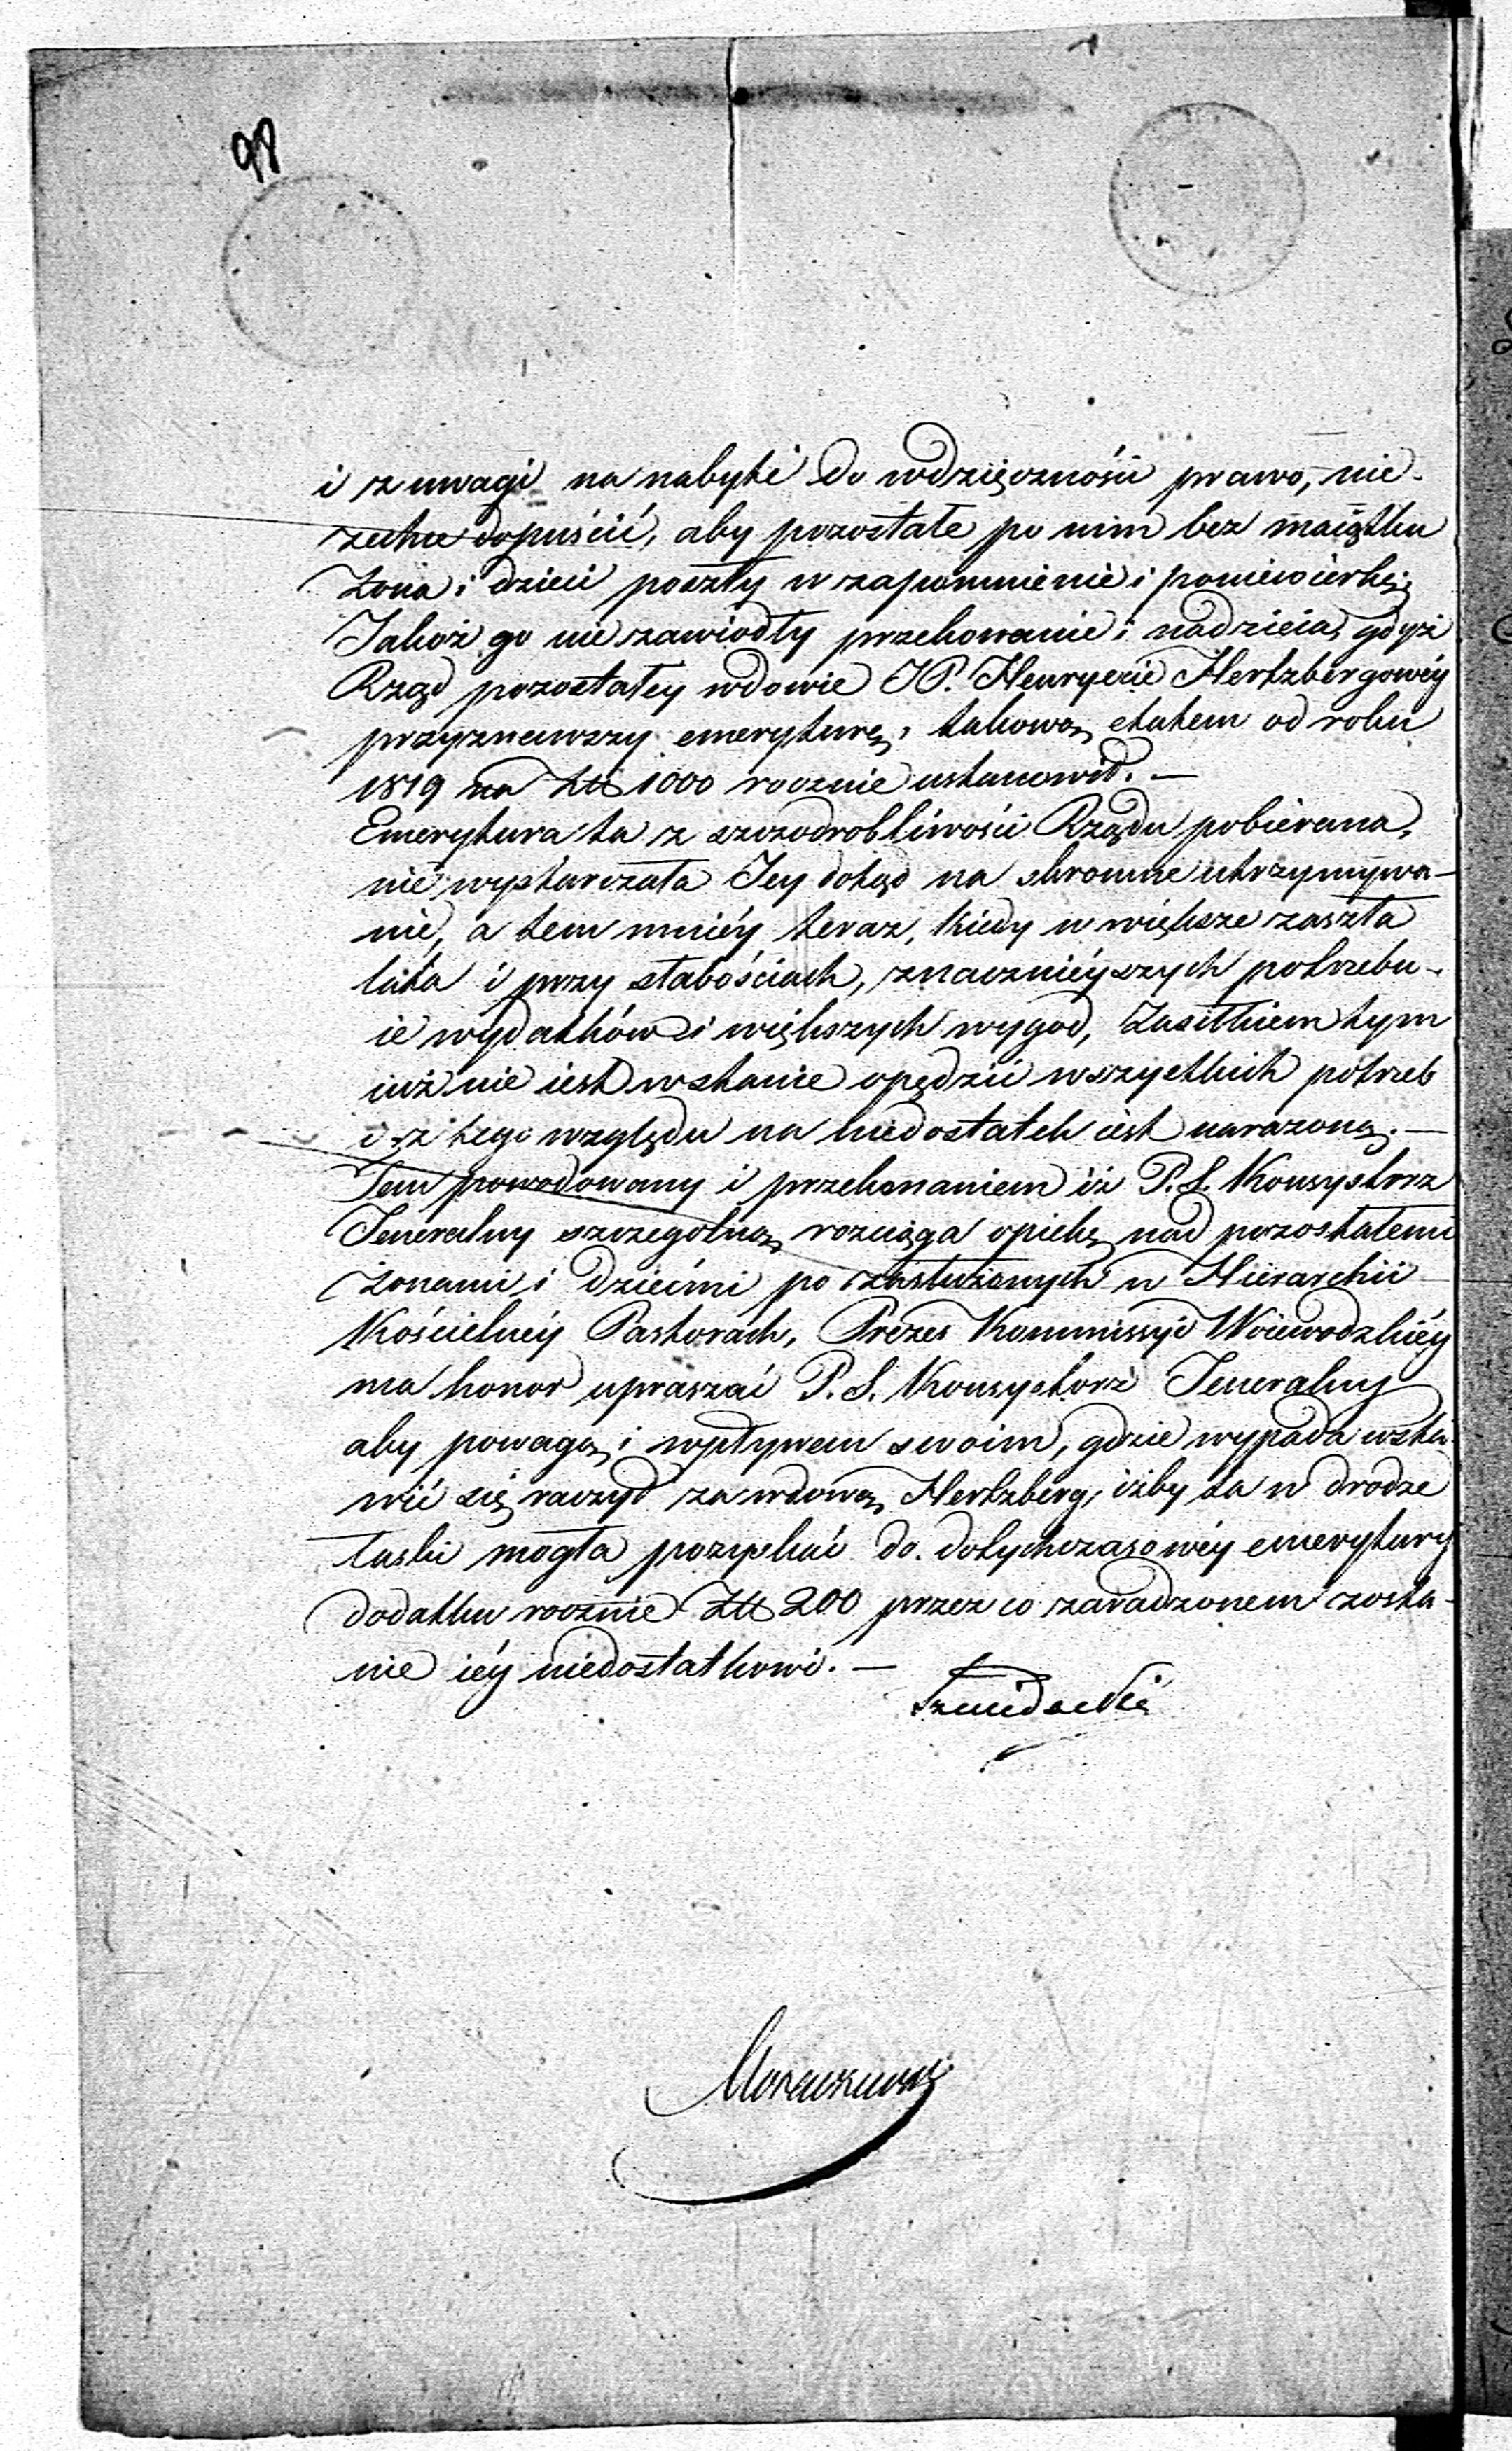 98
i z uwagi na nabyte do wdzięczności prawo, nie-
zechce dopuścić, aby pozostałe po nim bez maiątku
żona i dzieci poszły w zapomnienie i poniewierkę;
Jakoż go nie zawiodły przekonanie i nadzieia, gdyż
Rząd pozostałey wdowie JP. Henryecie Hertzbergowéy
przyznawszy emeryturę, takową etatem od roku
1819 na Złł 1000 rocznie ustanowił. —
Emerytura ta z szczodrobliwości Rządu pobierana,
nie wystarczała Jey dotąd na skromne utrzymywa-
nie, a tem mniéy teraz, kiedy w większe zaszła
lata i przy słabościach, znacznieyszych potrzebu-
ie wydatków i większych wygod, Zasiłkiem tym
iuż nie iest w stanie opędzić wszystkich potrzeb
i z tego względu na niedostatek iest narażoną. —
Tem powodowany i przekonaniem iż P. S. Konsystorz
Jeneralny szczególną rozciąga opiekę nad pozostałemi
żonami i dziećmi po zasłużonych w Hierarchii
Kościelnéy Pastorach, Prezes Kommissyi Woiewodzkiéy
ma honor upraszać P. S. Konsystorz Jeneralny
aby powagą i wpływem swoim, gdzie wypada wsta-
wić się raczył za wdową Hertzberg, iżby ta w drodze
łaski mogła pozyskać do dotychczasowéy emerytury
dodatku rocznie Złł 200 przez co zaradzonem zosta-
nie iéy niedostatkowi. —